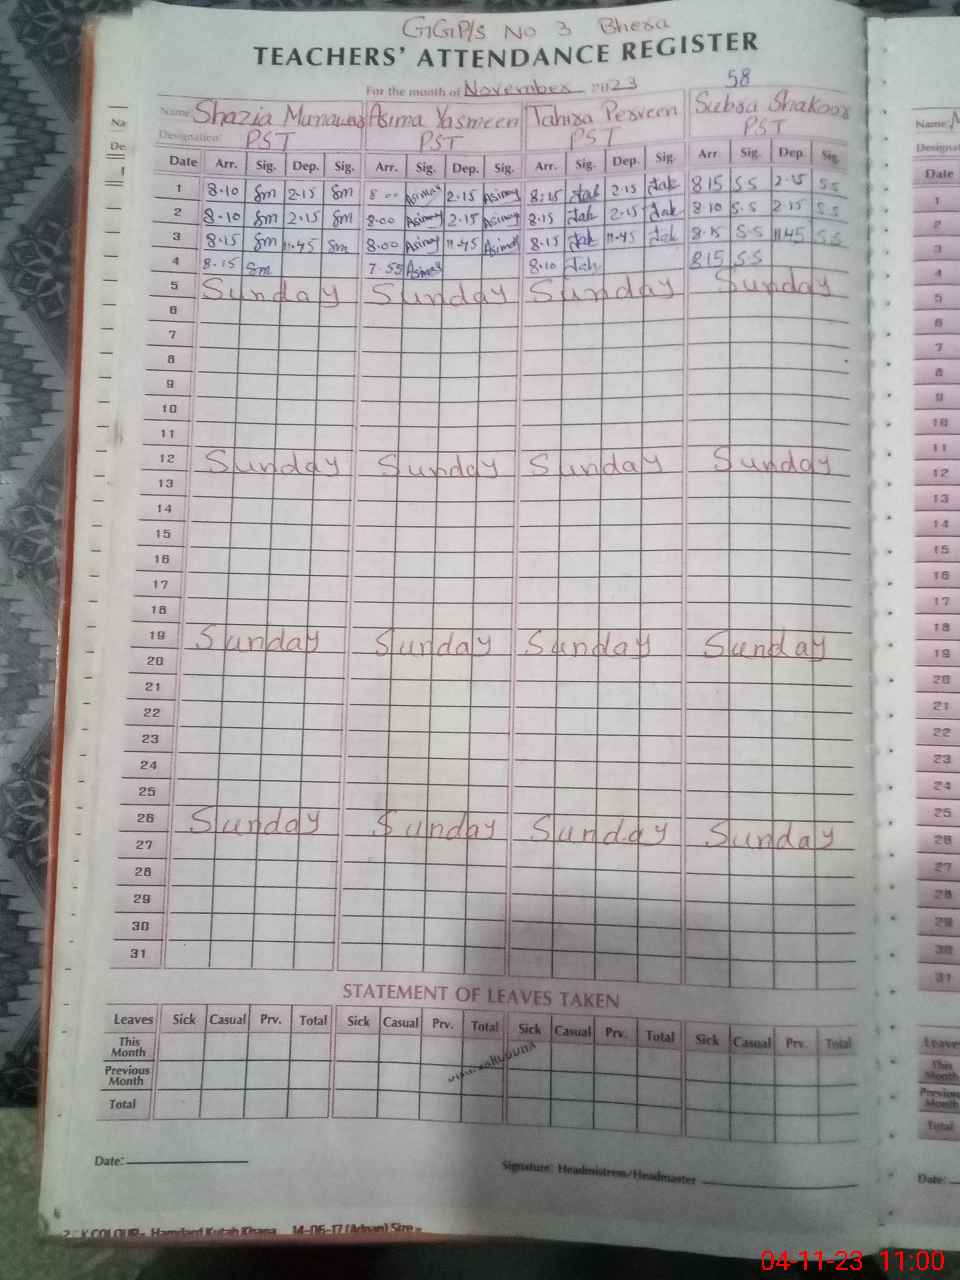 GGP/S No 3 Bhera
TEACHERS' ATTENDANCE REGISTER
58
For the month of November 2023
Name Shazia Munawar Asima Yasmeen Tahira Perveen Subra Shakoor
Designation: PST PST PST PST
Date Arr. Sig. Dep. Sig. Arr. Sig. Dep. Sig. Arr. Sig. Dep. Sig. Arr. Sig. Dep. Sig.
1 8.10 Sm 2.15 Sm 8.00 Asima 2.15 Asima 8.15 2.15 8 15 S.S 2.15 S.S
2 8.10 Sm 2.15 Sm 8.00 Asima 2.15 Asima 8.15 2.15 8 10 S.S 2.15 S.S
3 8.15 Sm 11.45 Sm 8.00 Asima 11.45 Asima 8.15 11.45 8.15 S.S 11.45 S.S
4 8.15 Sm 7.55 Asima 8.10 8.15 S.S
5 Sunday Sunday Sunday Sunday
6
7
8
9
10
11
12 Sunday Sunday Sunday Sunday
13
14
15
16
17
18
19 Sunday Sunday Sunday Sunday
20
21
22
23
24
25
26 Sunday Sunday Sunday Sunday
27
28
29
30
31
STATEMENT OF LEAVES TAKEN
Leaves Sick Casual Prv. Total Sick Casual Prv. Total Sick Casual Prv. Total Sick Casual Prv. Total
This Month
Previous Month
Total
Date:
Signature: Headmistress/Headmaster
COLOUR- Hamdard Kutab Khana 14-06-17 (Adnan) Size
Name:
Date
1
2
3
4
5
6
7
8
9
10
11
12
13
14
15
16
17
18
19
20
21
22
23
24
25
26
27
28
29
30
31
Leaves
This Month
Previous Month
Total
Date:
04-11-23 11:00